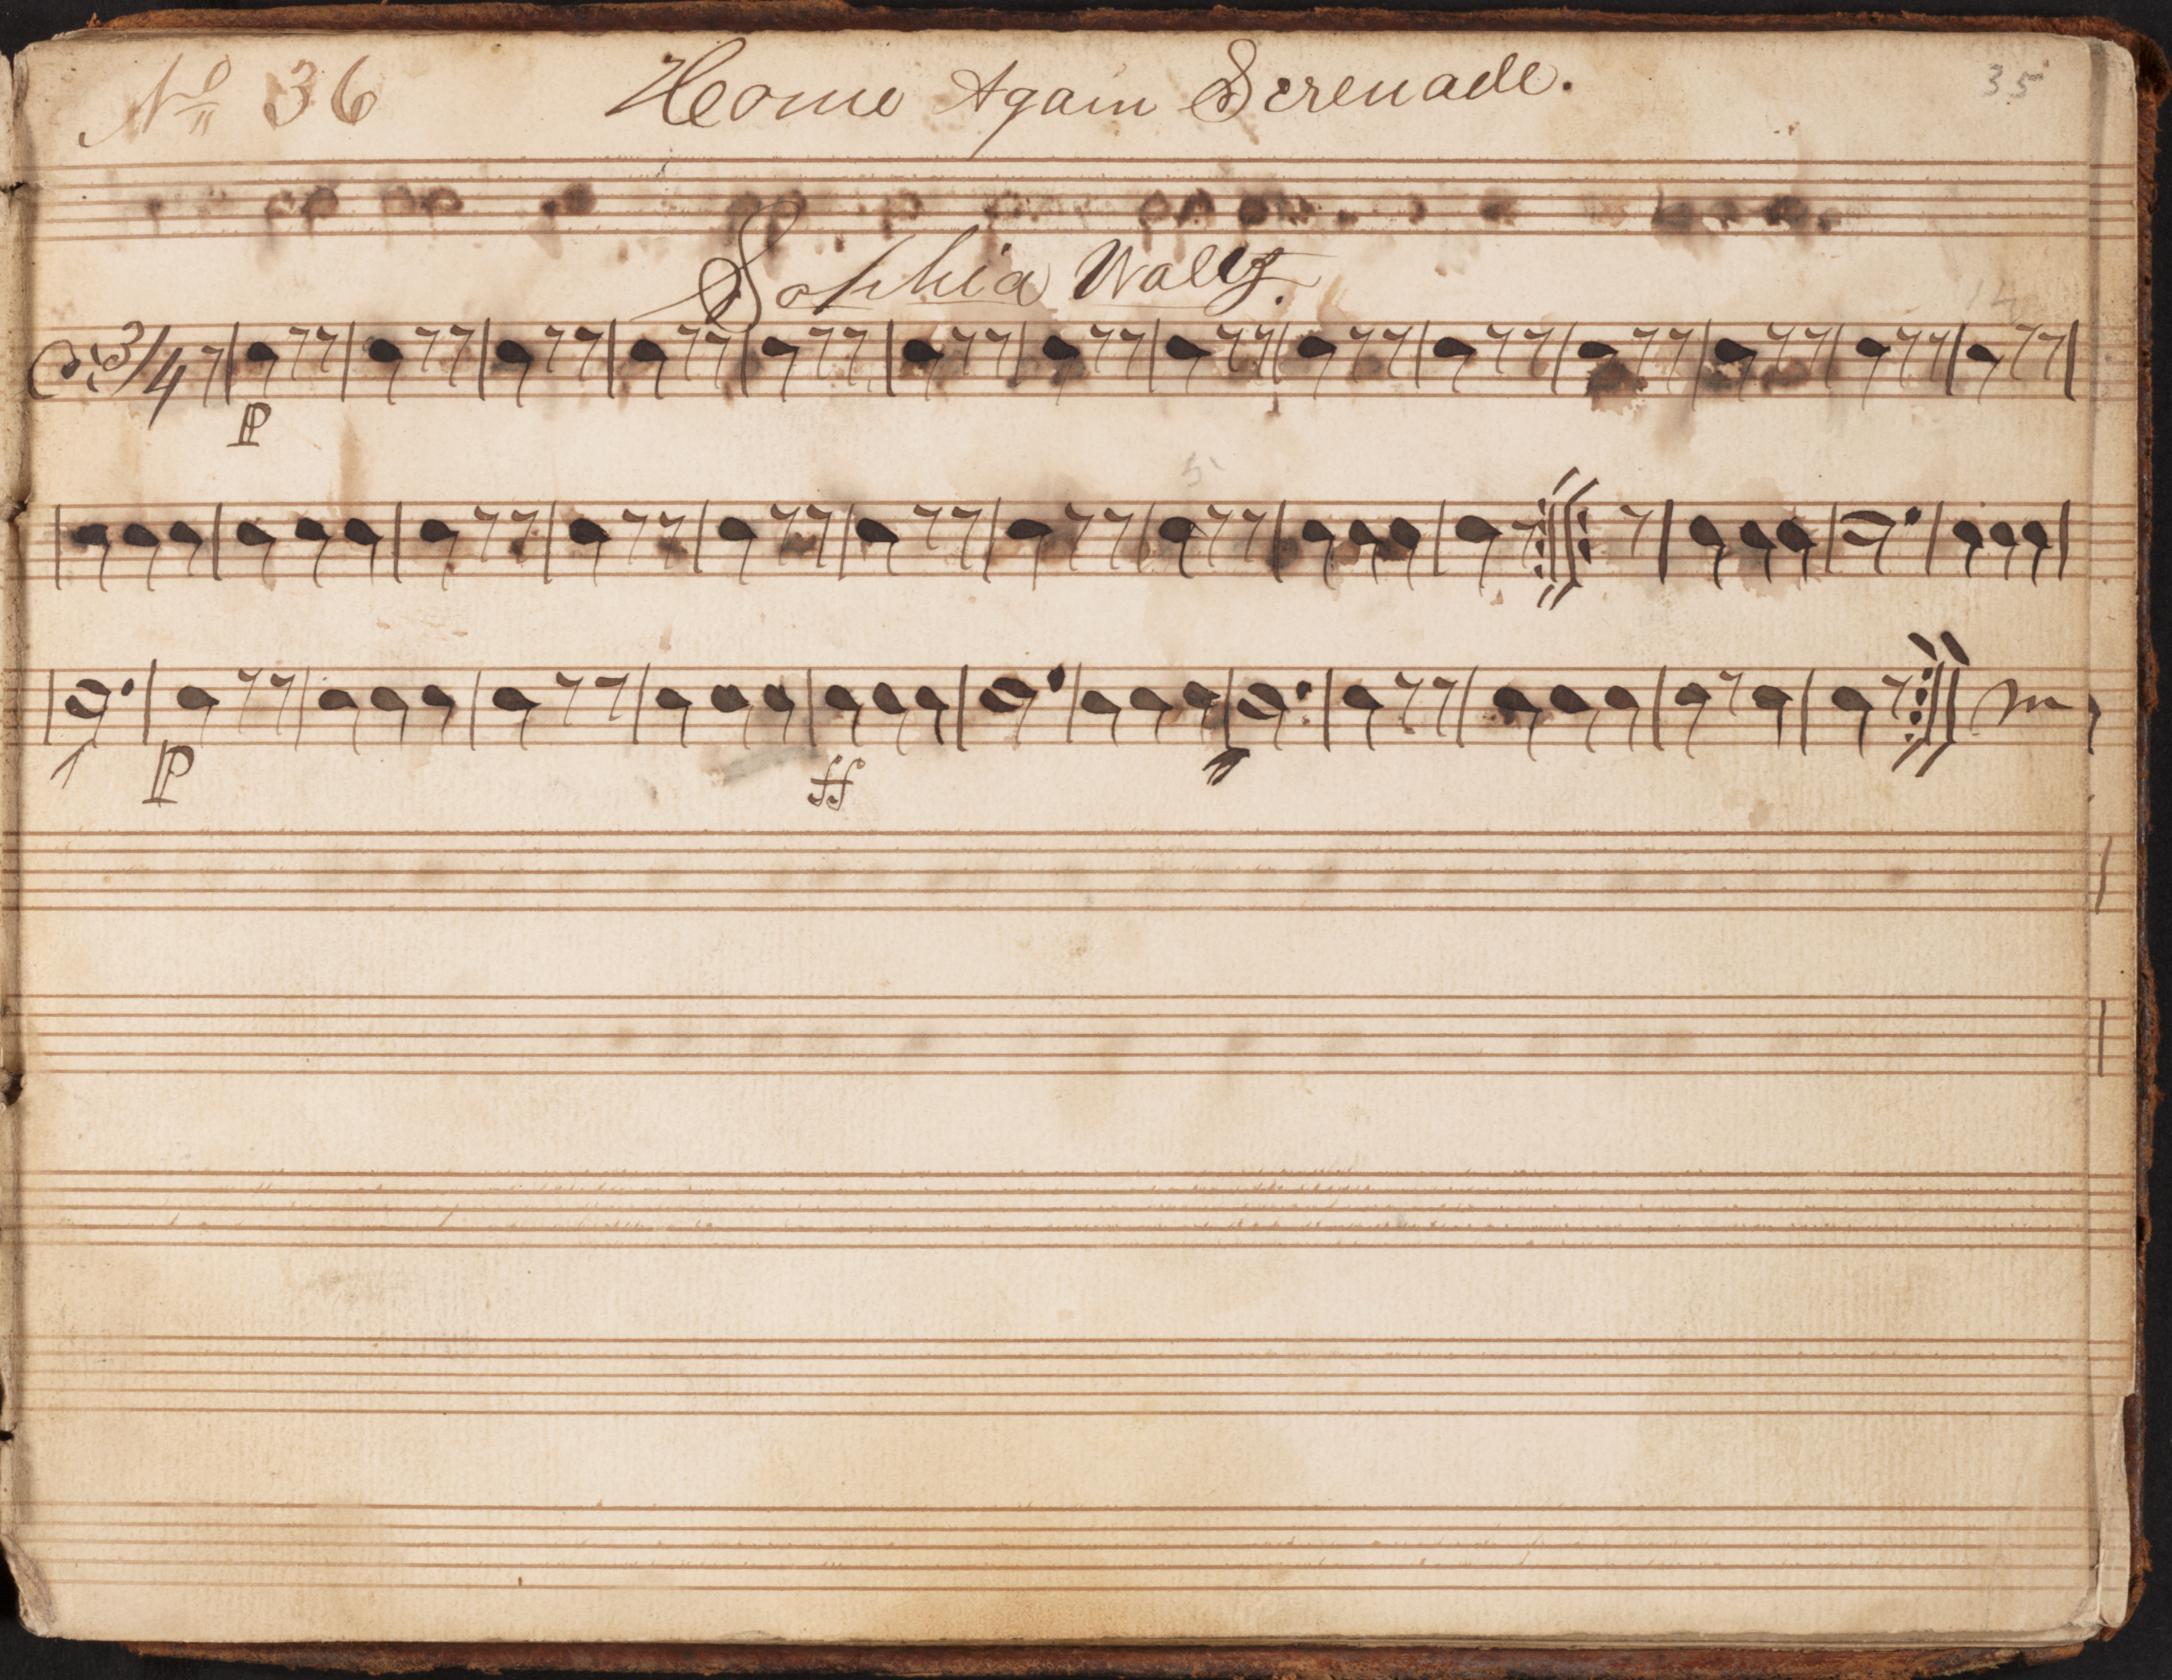 No 36 Home Again Serenade. 35
Sophia Waltz.
3/4
P
5
P ff